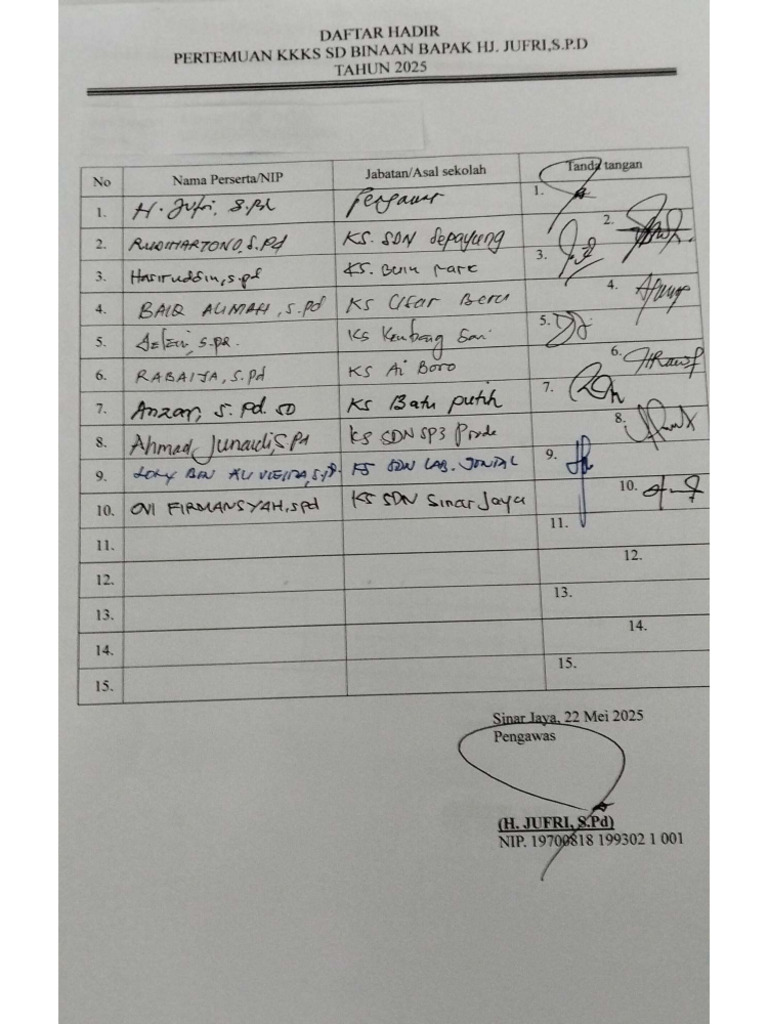 DAFTAR HADIR
PERTEMUAN KKKS SD BINAAN BAPAK HJ. JUFRI,S.P.D
TAHUN 2025
No Nama Perserta/NIP Jabatan/Asal sekolah Tanda tangan
1. H. Jufri, S.Pd Pengawas 1.
2. RUDIHARTONO, S.Pd KS. SDN Sepayung 2.
3. Hasiruddin, s.pd KS. Buin 3.
4. BAIQ ALIMAH, S.Pd KS Usar 4.
5. KS Kembang Sari 5.
6. RABAIYA, S.Pd KS Ai Boro 6.
7. Anzar, S. Pd. SD KS Batu putih 7.
8. Ahmad Junaidi, S.Pd KS SDN SP3 Prode 8.
9. KS SDN LAB. 9.
10. OVI FIRMANSYAH, SPd KS SDN Sinar Jaya 10.
11. 11.
12. 12.
13. 13.
14. 14.
15. 15.
Sinar Jaya, 22 Mei 2025
Pengawas
(H. JUFRI, S.Pd)
NIP. 19700818 199302 1 001